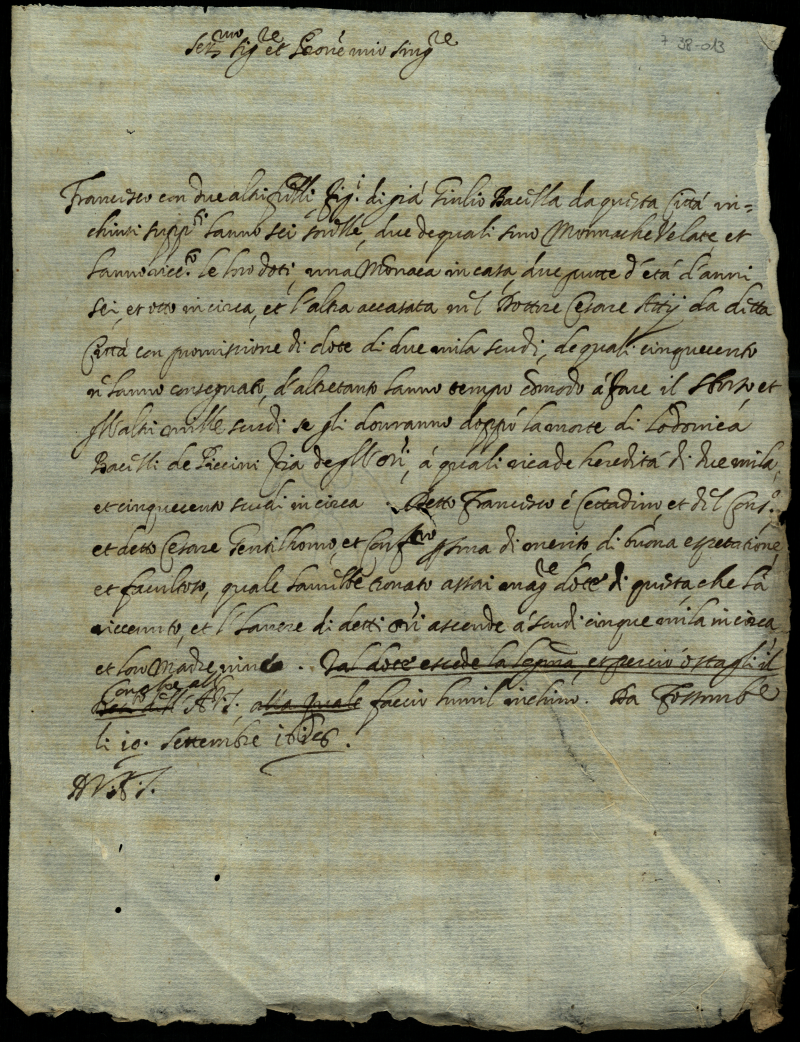 7 38-013
Ser.mo Sig.re et Prōne mio sing.re
Francisco con due altri frēlli fig.i di già Giulio Bacilla da questa Città in=
chinti supp.i hanno sei sorelle, due de quali sono Monache Velate, et
hanno le loro doti, una Monaca in casa, due putte d'età d'anni
sei, et otto in circa, et l'altra accasata nel Dottore Cesare da detta
Città con promissione di dote di due mila scudi, de quali cinquecento
n'hanno consegnato, d'altretanto hanno tempo cōmodo à fare il sborso, et
gl'altri mille scudi se gli douranno doppò la morte di Lodovica
Bacilli de Piccini Zia degl'Orī, à quali ricade heredità di due mila,
et cinquecento scudi in circa. Detto Francisco è Cittadino, et del Cons.o
et detto Cesare Gentilhomo, et di merito, di buona espetatione,
et facultoso, quale haurebbe trouato assai mag.re dote di questa che hà
riceuuto, et l'hauere di detti Orī ascende à scudi cinque mila in circa
et loro Madre viue. Tal dote et perciò osta gli il
all' A.V.S. alla quale faccio humil inchino. Da Fossomb.e
li 10. Settembre 1626.
D.V.A.S.